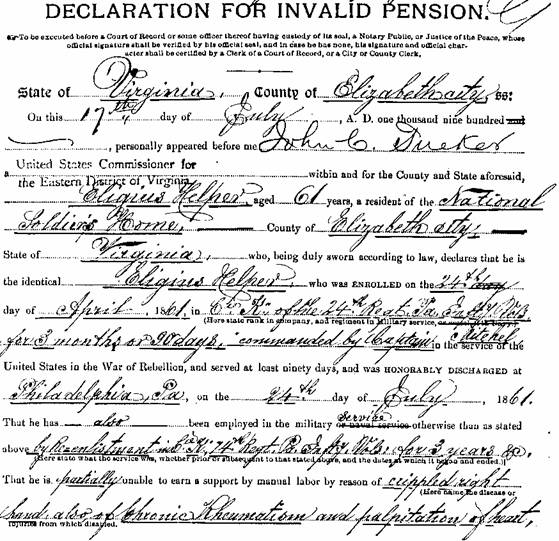 DECLARATION FOR INVALID PENSION.
To be executed before a Court of Record or some officer thereof having custody of its seal, a Notary Public, or Justice of the Peace, whose
official signature shall be verified by his official seal, and in case he has none, his signature and official char-
acter shall be certified by a Clerk of a Court of Record, or a City or County Clerk.
State of Virginia, County of Elizabeth city, ss:
On this 17th day of July, A. D. one thousand nine hundred and
, personally appeared before me John C. Tucker
a United States Commissioner for
the Eastern District of Virginia within and for the County and State aforesaid,
Eligius Helper aged 61 years, a resident of the National
Soldiers Home, County of Elizabeth city,
State of Virginia, who, being duly sworn according to law, declares that he is
the identical Eligius Helper who was ENROLLED on the 24th
day of April, 1861, in Co. A. of the 24th Regt. Pa Infty Vols
(Here state rank in company, and regiment in Military service,
for 3 months or 90 days, commanded by Captain Mitchel in the service of the
United States in the War of Rebellion, and served at least ninety days, and was HONORABLY DISCHARGED at
Philadelphia, Pa, on the 24th day of July, 1861.
That he has also been employed in the military service or naval service otherwise than as stated
above by Reenlistment in Co. 74 Regt. Pa. Infty Vols. for 3 years &c.
(Here state what the service was, whether prior or subsequent to that stated above, and the dates at which it began and ended.)
That he is partially unable to earn a support by manual labor by reason of crippled right
(Here name the disease or
hand, also of chronic Rheumatism and palpitation of heart,
injuries from which disabled.